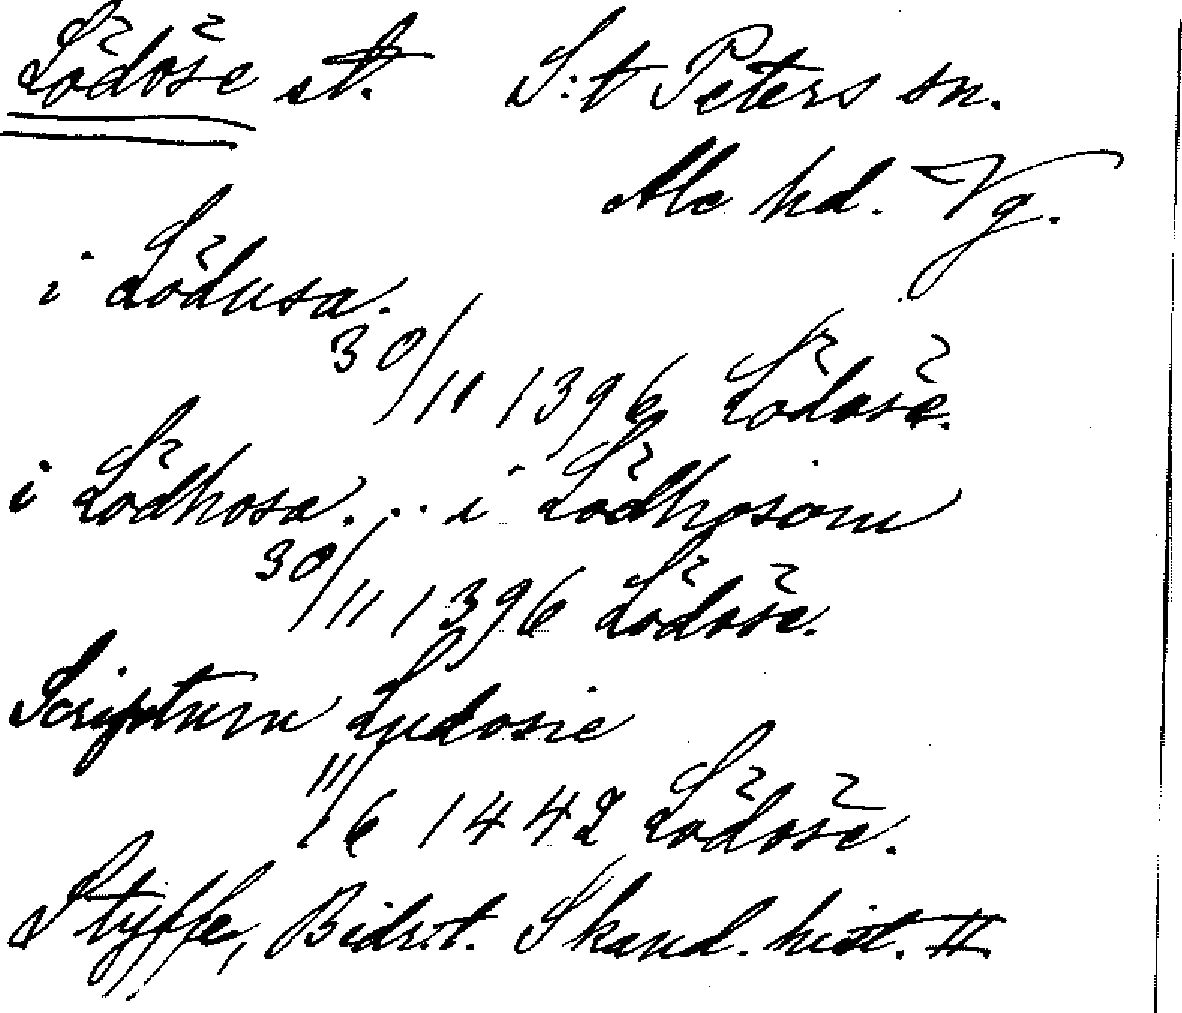 Lödöse st. S:t Peters sn.
Ale hd. Vg.
i Lödusa.
30/11 1396 Lödöse.
i Lödhosa... i Lödhosom
30/11 1396 Lödöse.
Scriptum Ludosie
11/6 1442 Lödöse.
Styffe, Bidr. t. Skand. hist. II.